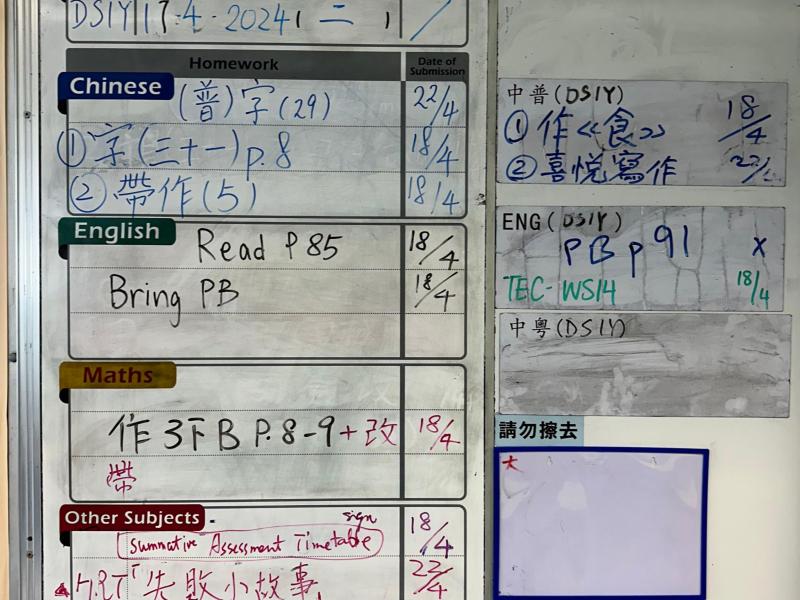 DS1Y 17 · 4 · 2024 ( 二 )
Homework
Date of Submission
Chinese (普) 字 (29) 22/4
① 字 (三十一) p.8 18/4
② 帶作 (5) 18/4
English Read P 85 18/4
Bring PB 18/4
Maths
作 3下 B P. 8-9 + 改 18/4
帶
Other Subjects
sign
Summative Assessment Timetable 18/4
失敗小故事 22/4
中普 (DS1Y)
① 作 《食》 18/4
② 喜悅寫作
ENG (DS1Y)
PB p 91 x
TEC- WS14 18/4
中粵 (DS1Y)
請勿擦去